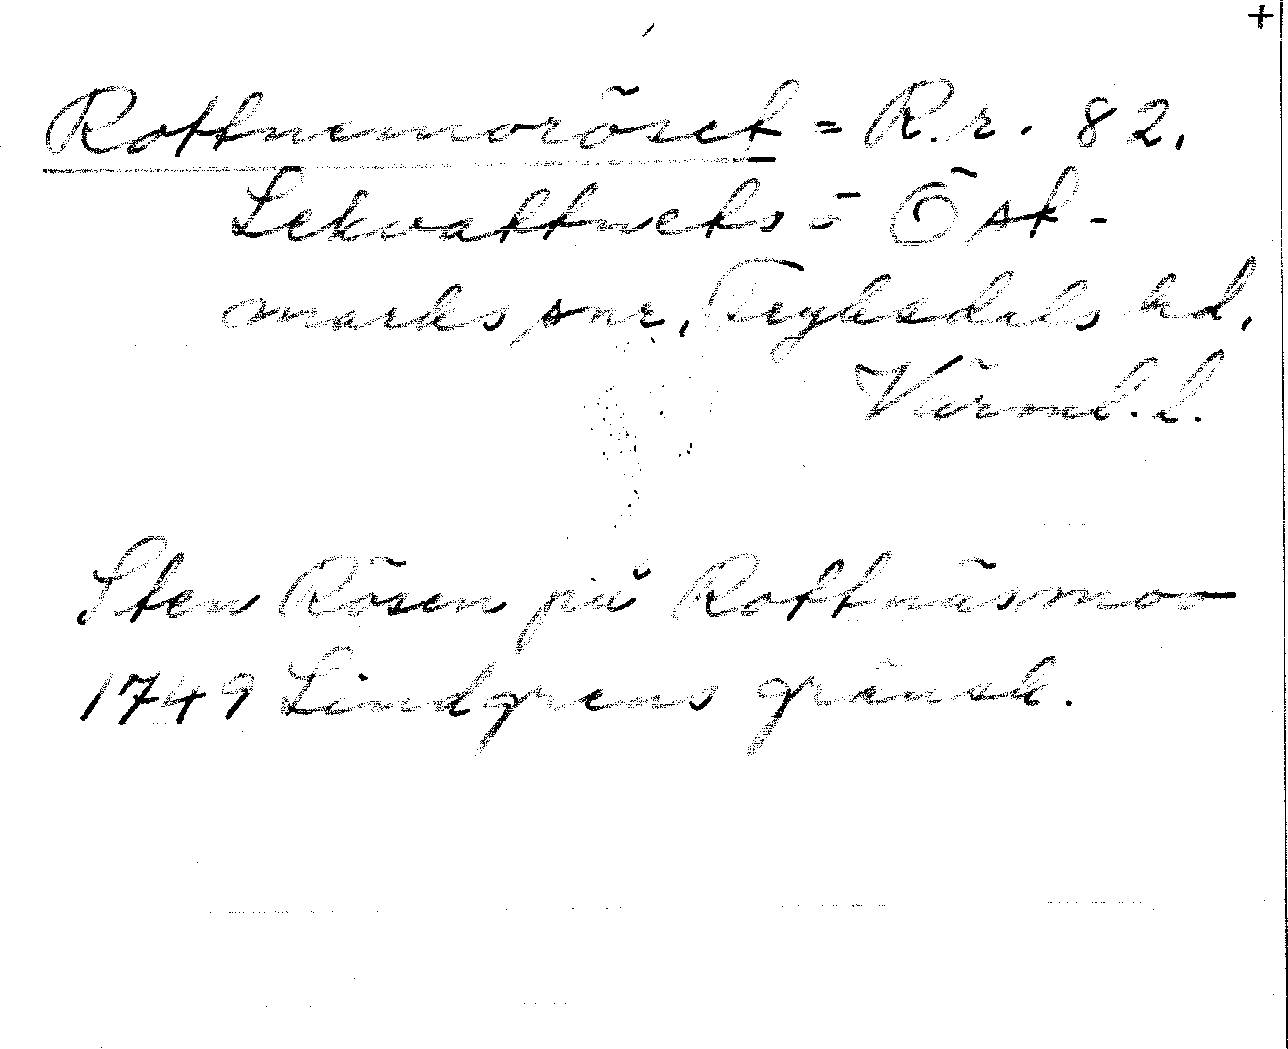 +
Rottnemoröset = R.r. 82.
Lekvattnets o Öst-
marks snr, Fryksdals hd,
Värml. l.
Sten Rösen på Rottnäsmoo
1749 Lindgrens gränsk.